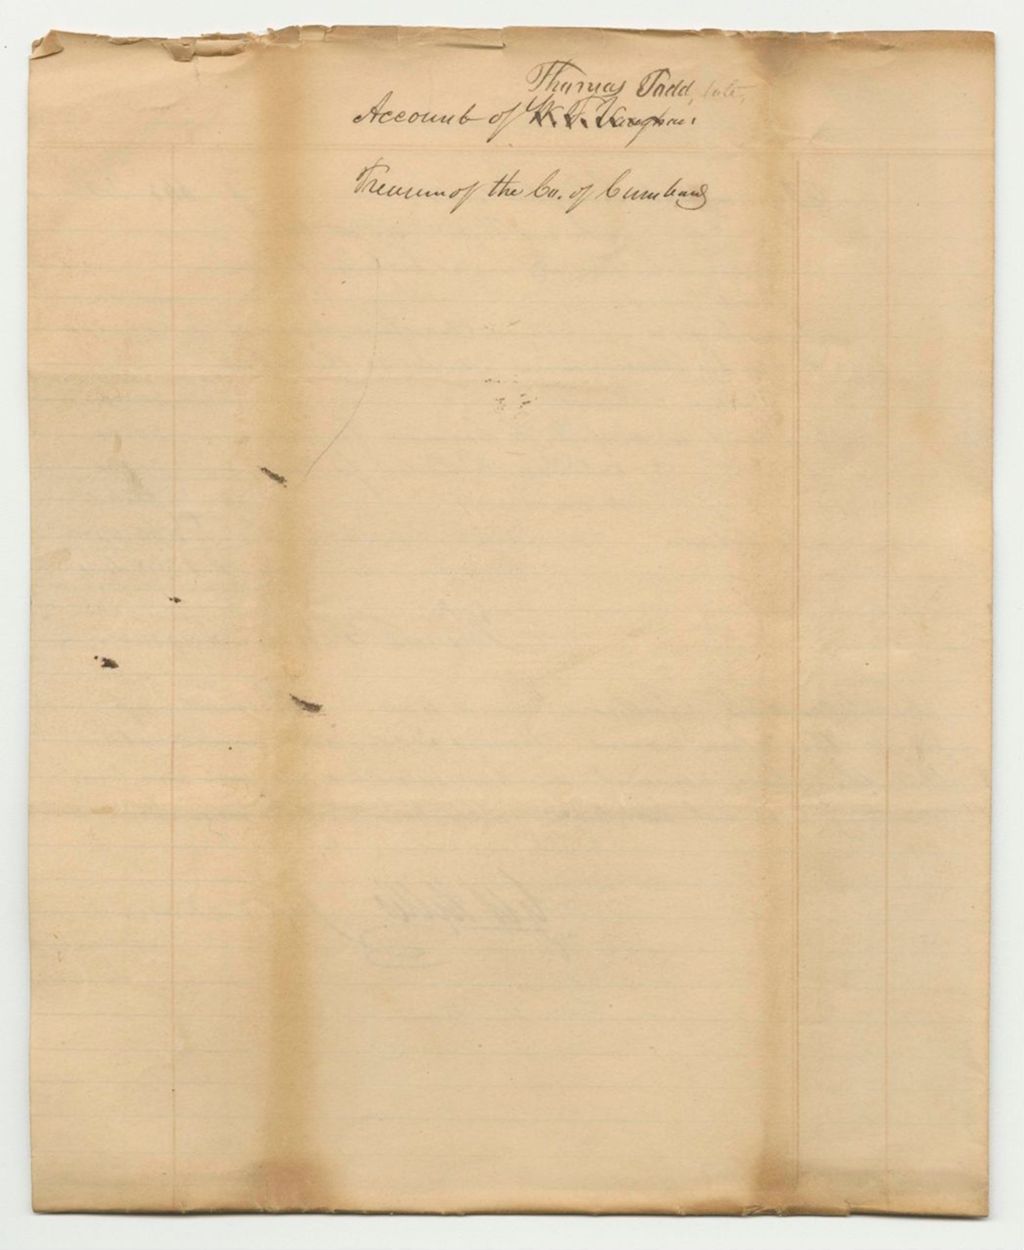 Thomas Todd, late,
Account of W. F. Vaughan
Treasurer of the Co. of Cumberland